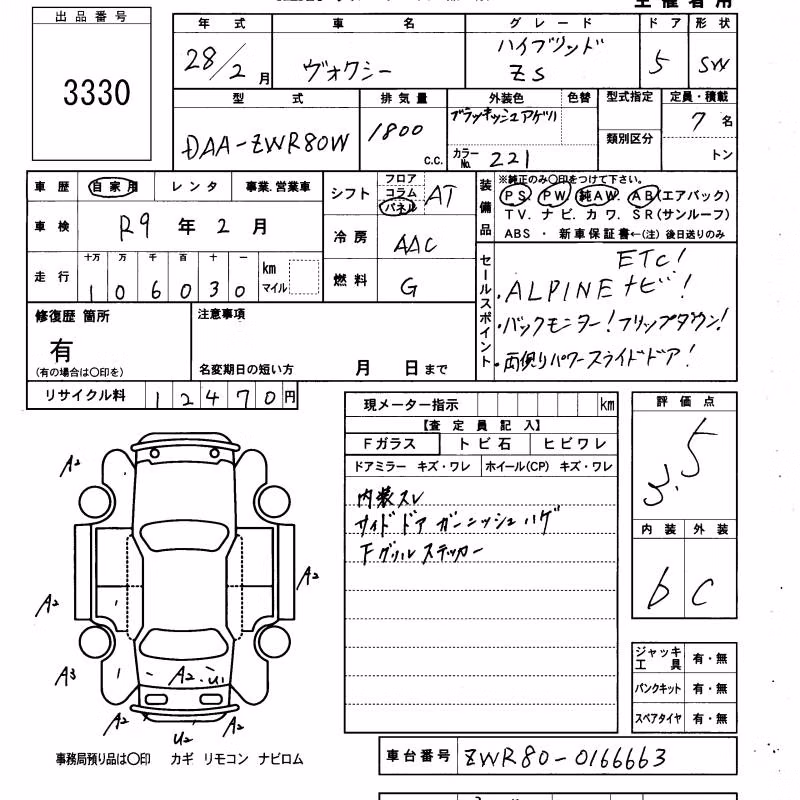 主催者用
出品番号
3330
年式 車名 グレード ドア 形状
28/2月 ヴォクシー ハイブリッド ZS 5 SW
型式 排気量 外装色 色替 型式指定 定員・積載
DAA-ZWR80W 1800 c.c. ブラッキッシュアゲハ 類別区分 7名
カラーNo. 221 トン
車歴 自家用 レンタ 事業.営業車
車検 R9年2月
走行 十万 万 千 百 十 一 km マイル
106030
シフト フロア コラム パネル AT
冷房 AAC
燃料 G
装備品 ※純正のみ〇印をつけて下さい。
PS. PW. 純AW. AB(エアバッグ)
TV. ナビ. カワ. SR(サンルーフ)
ABS ・ 新車保証書←(注) 後日送りのみ
セールスポイント
ETC!
・ALPINEナビ!
・バックモニター!フリップダウン!
・両側パワースライドドア!
修復歴 箇所
有
(有の場合は〇印を)
注意事項
名変期日の短い方 月 日まで
リサイクル料 12470円
現メーター指示 km
【査定員記入】
Fガラス トビ石 ヒビワレ
ドアミラー キズ・ワレ ホイール(CP) キズ・ワレ
内装スレ
サイドドアガーニッシュハゲ
Fグリルステッカー
評価点
3.5
内装 外装
b C
ジャッキ工具 有・無
パンクキット 有・無
スペアタイヤ 有・無
A2
A2
A2
A3
A2.
U1
A2
A2
U2
事務局預り品は〇印 カギ リモコン ナビロム
車台番号 ZWR80-0166663